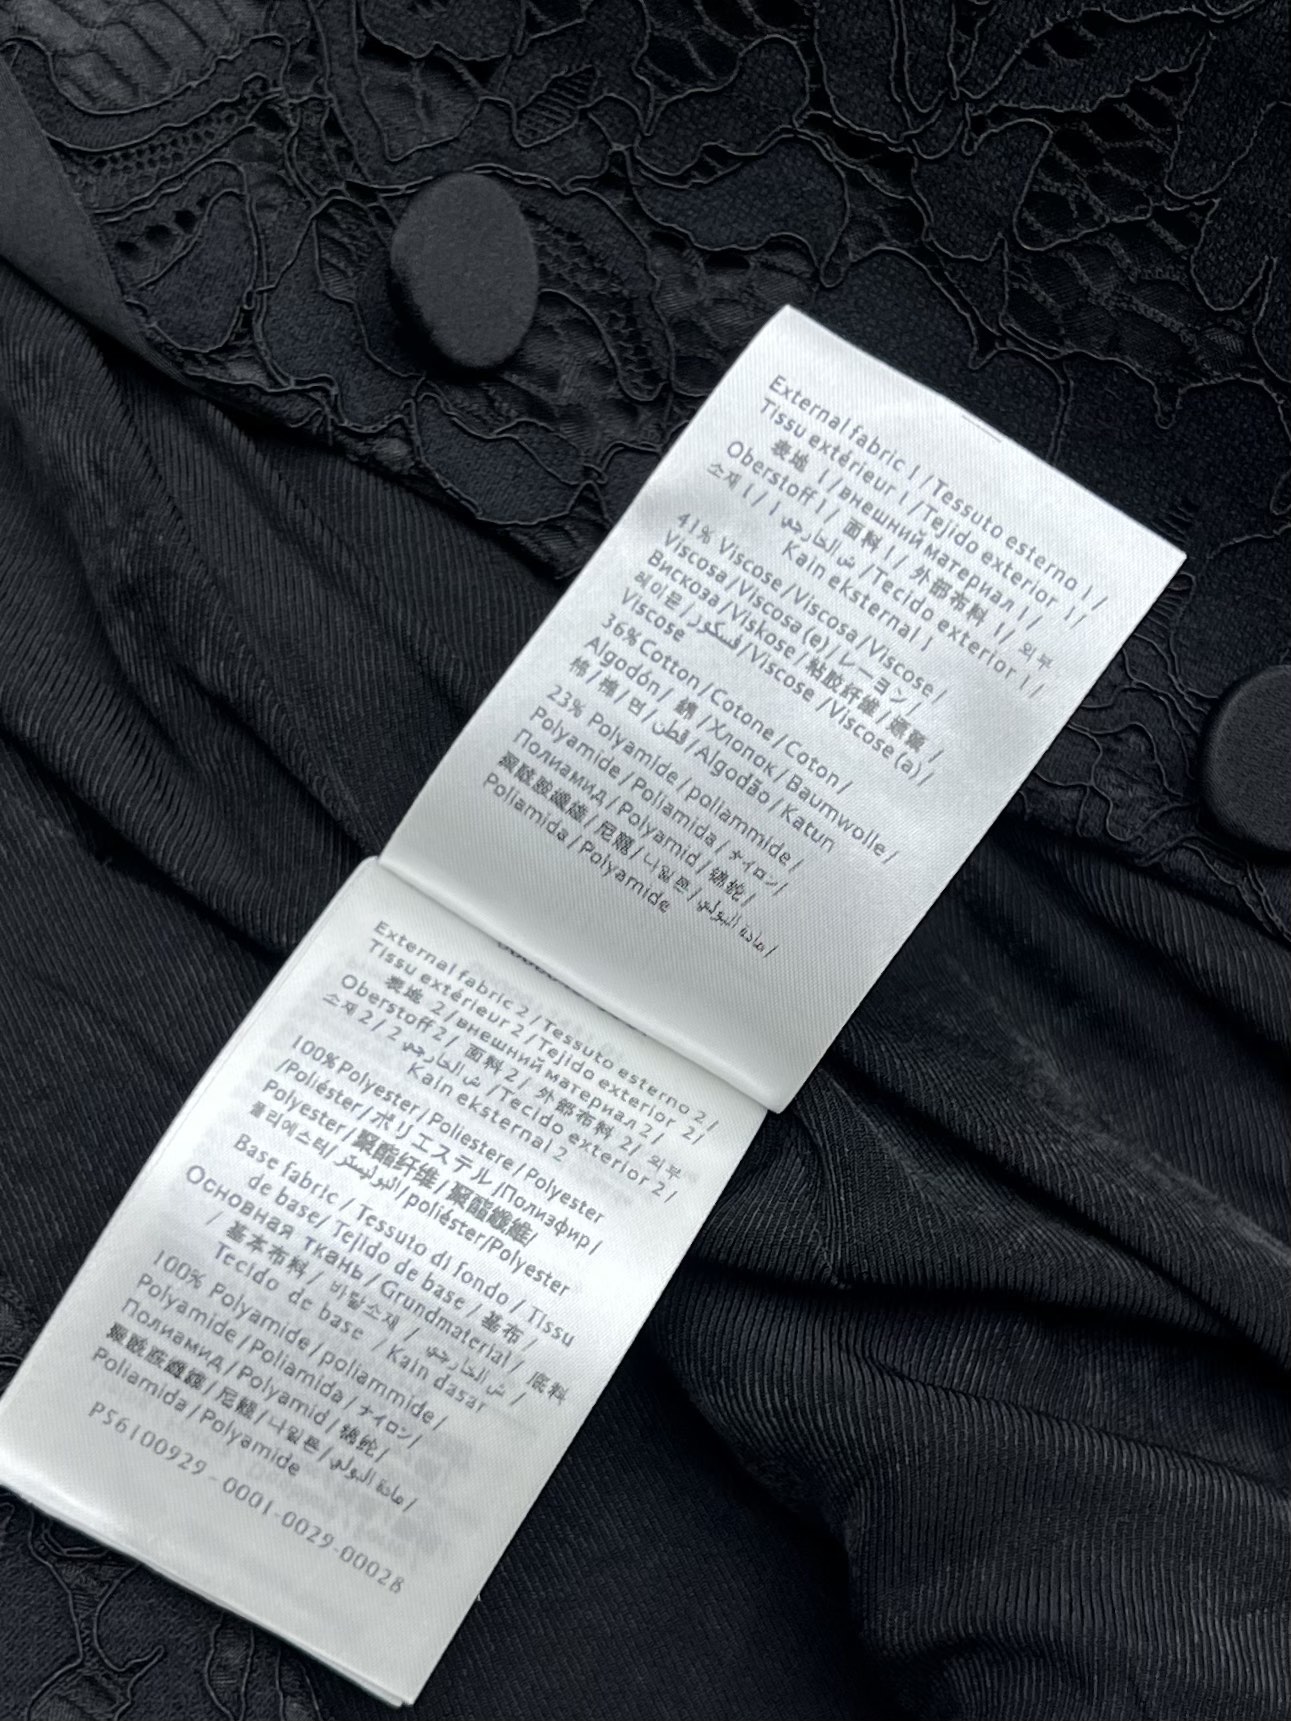 External fabric 1 / Tessuto esterno 1 /
Tissu extérieur 1 / Tejido exterior 1 /
表地 1 / внешний материал 1 /
Oberstoff 1 / 面料 1 / 外部布料 1 / 외부
소재 1 / 1 ش الخارجي / Tecido exterior 1 /
Kain eksternal 1
41% Viscose / Viscosa / Viscose /
Viscosa / Viscosa (e) / レーヨン /
Вискоза / Viskose / 粘胶纤维 / 嫘縈 /
레이온 / فسكوز / Viscose / Viscose (a) /
Viscose
36% Cotton / Cotone / Coton /
Algodón / 綿 / Хлопок / Baumwolle /
棉 / 棉 / 면 / قطن / Algodão / Katun
23% Polyamide / poliammide /
Polyamide / Poliamida / ナイロン /
Полиамид / Polyamid / 锦纶 /
聚酰胺纖維 / 尼龍 / 나일론 / مادة البولي /
Poliamida / Polyamide
External fabric 2 / Tessuto esterno 2 /
Tissu extérieur 2 / Tejido exterior 2 /
表地 2 / внешний материал 2 /
Oberstoff 2 / 面料 2 / 外部布料 2 / 외부
소재 2 / 2 ش الخارجي / Tecido exterior 2 /
Kain eksternal 2
100% Polyester / Poliestere / Polyester
/ Poliéster / ポリエステル / Полиэфир /
Polyester / 聚酯纤维 / 聚酯纖維 /
폴리에스터 / البوليستر / poliéster / Polyester
Base fabric / Tessuto di fondo / Tissu
de base / Tejido de base / 基布 /
Основная ткань / Grundmaterial / 底料
/ 基本布料 / 바탕소재 / ش الخارجي /
Tecido de base / Kain dasar
100% Polyamide / poliammide /
Polyamide / Poliamida / ナイロン /
Полиамид / Polyamid / 锦纶 /
聚酰胺纖維 / 尼龍 / 나일론 / مادة البولي /
Poliamida / Polyamide
P56100929-0001-0029-00028